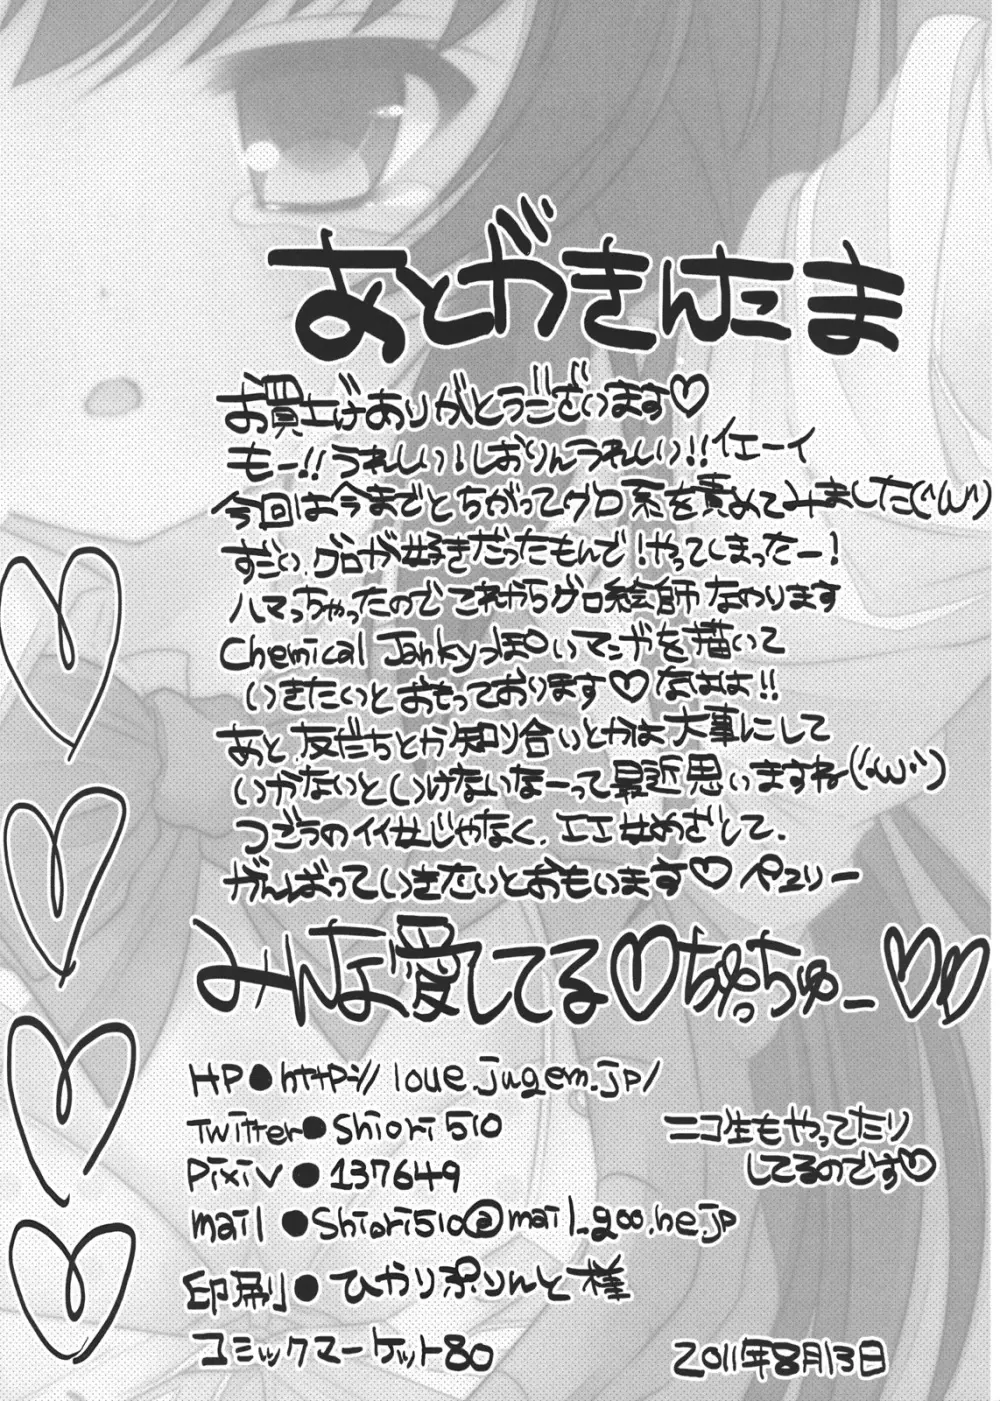 あとがきんたま
お買上げありがとうございます♡
もー!!うれしい!しおりんうれしい!!イエーイ
今回は今までとちがってグロ系を責めてみました(´ω`)
すごい、グロが好きだったもんで!やってしまったー!
ハマっちゃったのでこれからグロ絵師なのります
Chemical Jankyっぽいマンガを描いて
いきたいとおもっております♡なはは!!
あと、友だちとか知り合いとかは大事にして
いかないといけないなーって最近思いますね(´・ω・`)
つごうのイイ女じゃなく、エエ女めざして、
がんばっていきたいとおもいます♡ペロリー
みんな愛してる♡ちゅっちゅー♡♡
HP●http://loue.jugem.jp/
Twitter●Shiori510
ニコ生もやってたり
してるのです♡
Pixiv●137649
mail●Shiori510@mail.goo.ne.jp
印刷●ひかりぷりんと様
コミックマーケット80
2011年8月13日